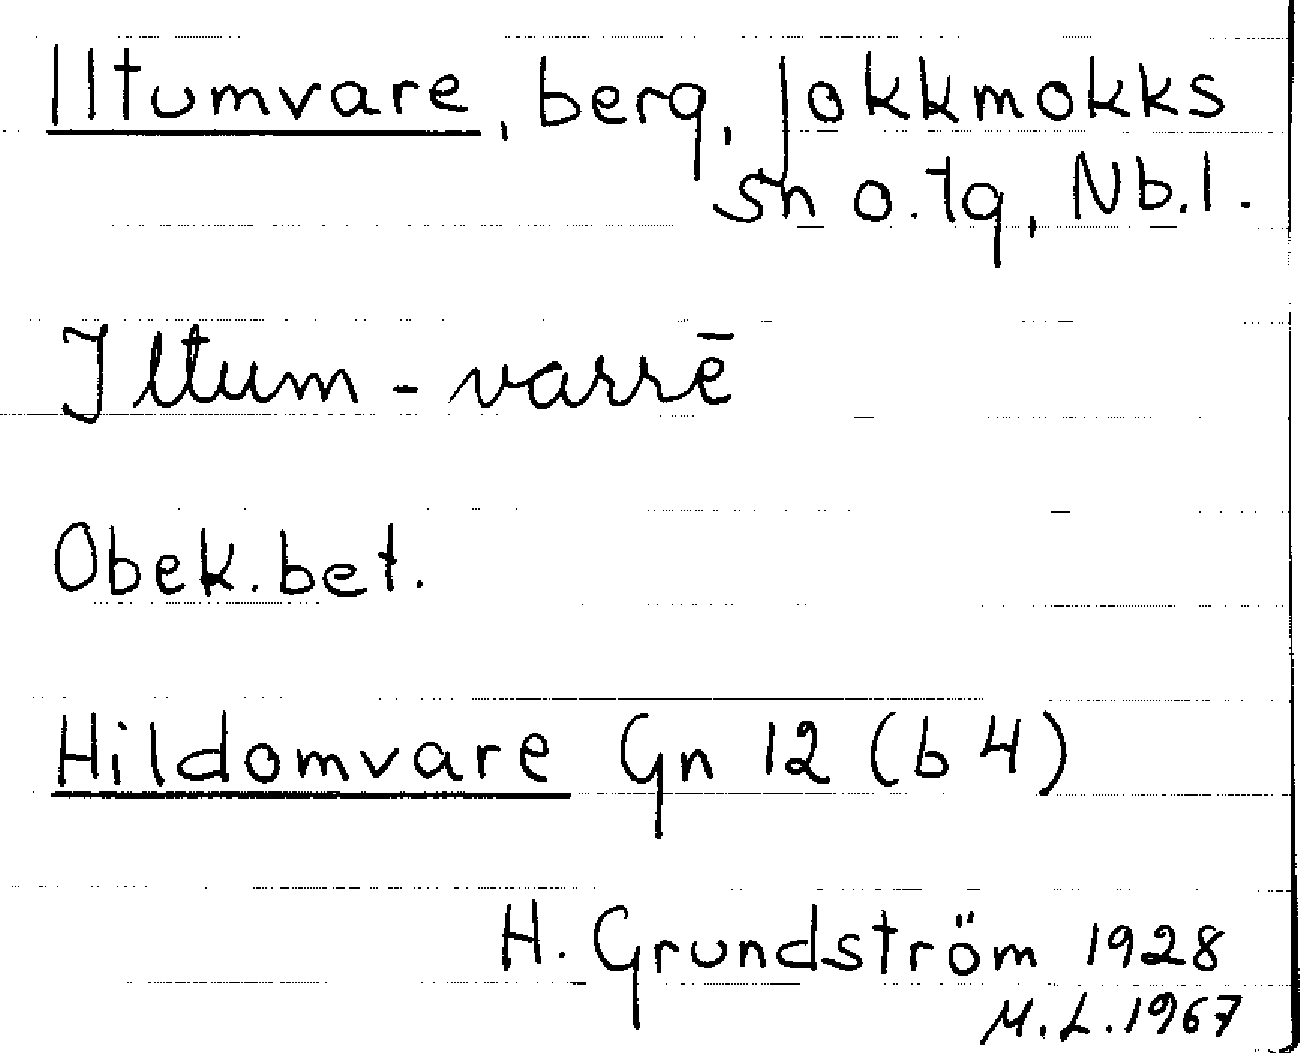 Iltumvare, berg, Jokkmokks
sn o. tg, Nb.l.
Iltum-varrē
Obek. bet.
Hildomvare Gn 12 (b 4)
H. Grundström 1928
M.L. 1967